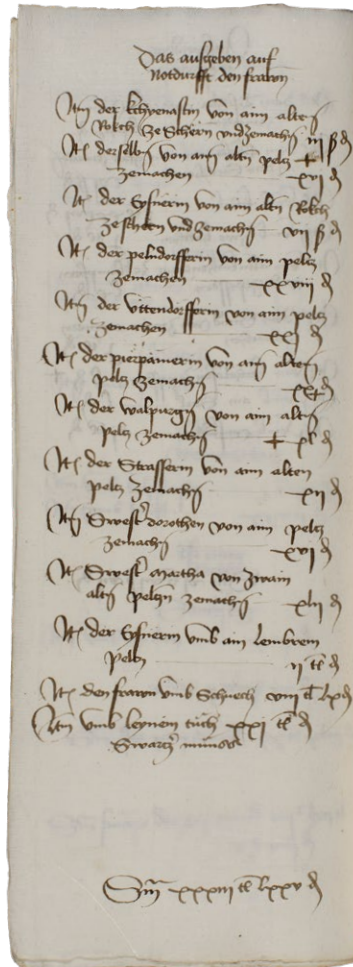 Das ausgeben auf
Notdurfft den frawn
Itm der von aim alten
Rokch ze Schern vnd zemachn iii ß d
Itm derselbn von aim altn peltz
zemachen xvi d
Itm der von aim altn Rokch
ze schern vnd zemachn vii ß d
Itm der pelndorfferin von aim peltz
zemachen xxviii d
Itm der vttendorfferin von aim peltz
zemachen xxi d
Itm der von aim alten
peltz zemachn
Itm der walpurgn von aim altn
peltz zemachn xl d
Itm der Strasserin von aim alten
peltz zemachn xii d
Itm Swest dorothen von aim peltz
zemachn xvi d
Itm Swest Martha von zwain
altn peltzn zemachn xlii d
Itm der vmb ain lembrein
peltz ii tl d
Itm den frawn vmb Schuech viii tl lx d
Itm vmb leynein tuch xxi tl d
Swartzer munss
Sm xxxiii tl lxxv d